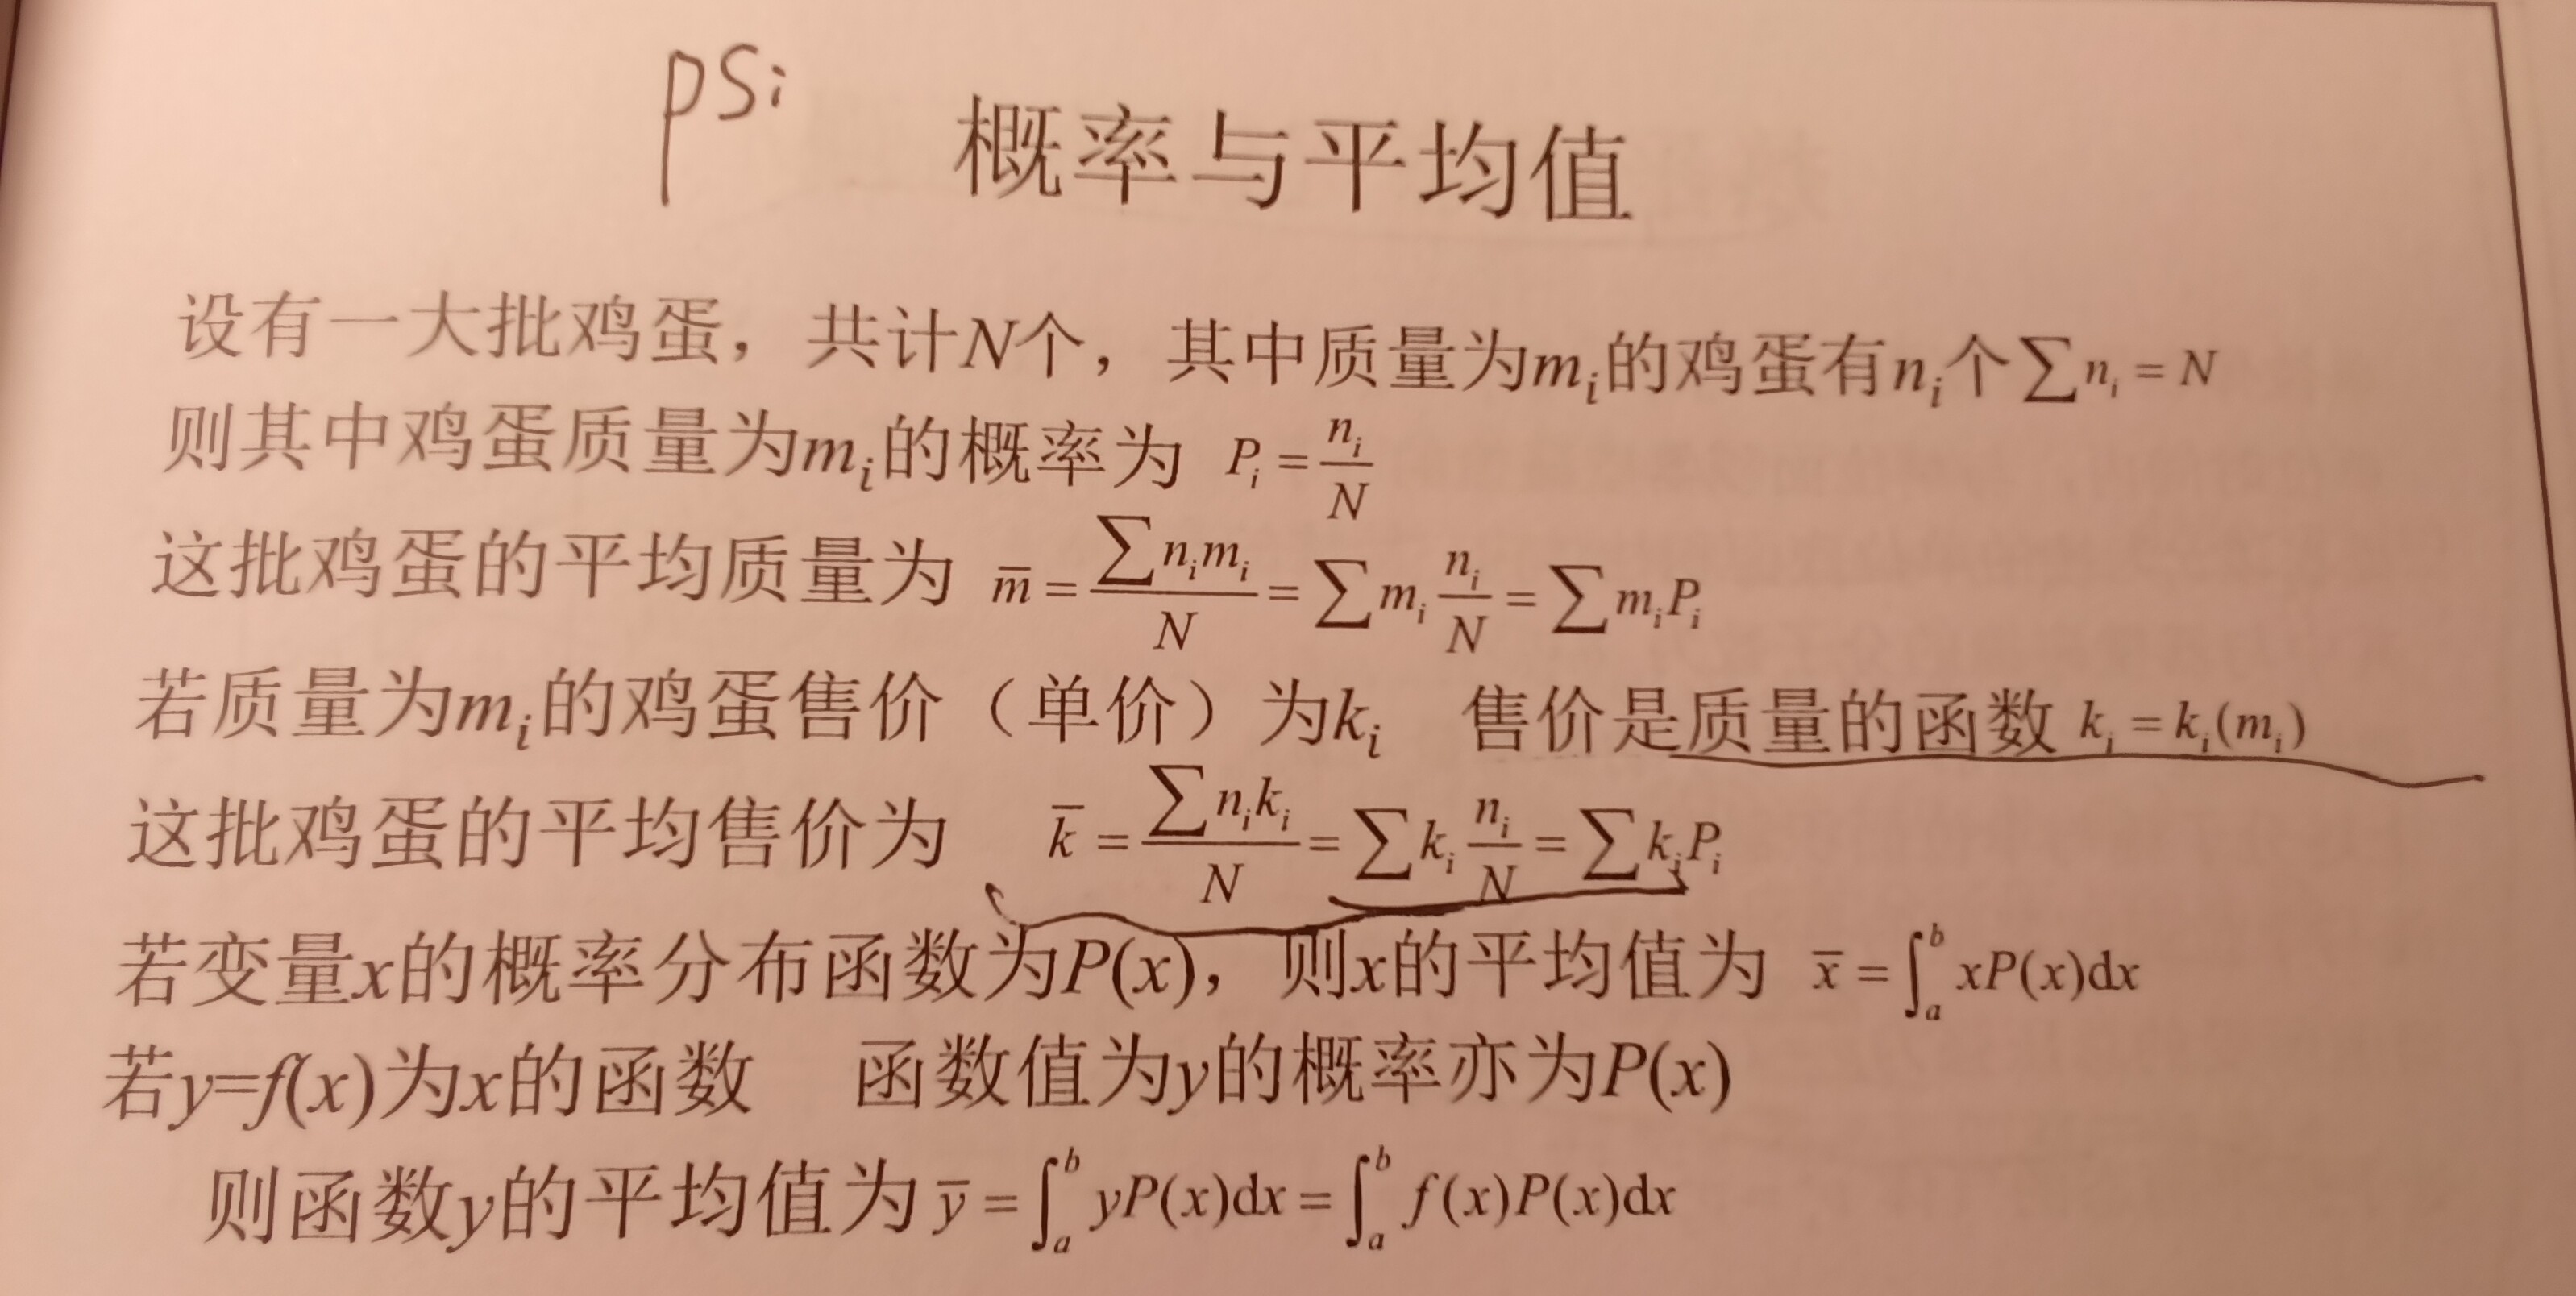 psi
概率与平均值
设有一大批鸡蛋，共计N个，其中质量为m_i的鸡蛋有n_i个∑n_i = N
则其中鸡蛋质量为m_i的概率为 P_i = n_i/N
这批鸡蛋的平均质量为 m̅ = ∑n_i m_i/N = ∑m_i n_i/N = ∑m_i P_i
若质量为m_i的鸡蛋售价（单价）为k_i 售价是质量的函数 k_i = k_i(m_i)
这批鸡蛋的平均售价为 k̅ = ∑n_i k_i/N = ∑k_i n_i/N = ∑k_i P_i
若变量x的概率分布函数为P(x)，则x的平均值为 x̅ = ∫_a^b xP(x)dx
若y=f(x)为x的函数 函数值为y的概率亦为P(x)
则函数y的平均值为 y̅ = ∫_a^b yP(x)dx = ∫_a^b f(x)P(x)dx